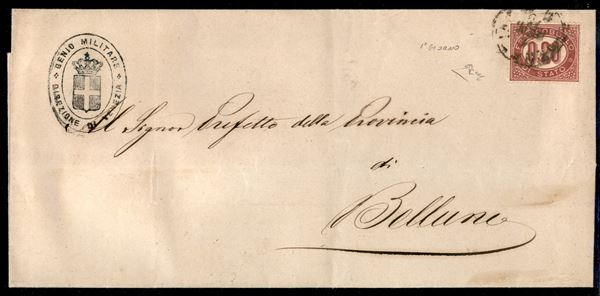 GENIO MILITARE
DIREZIONE DI VENEZIA
1° GIORNO
0.20
STATO
Al Signor Prefetto della Provincia
di
Belluno